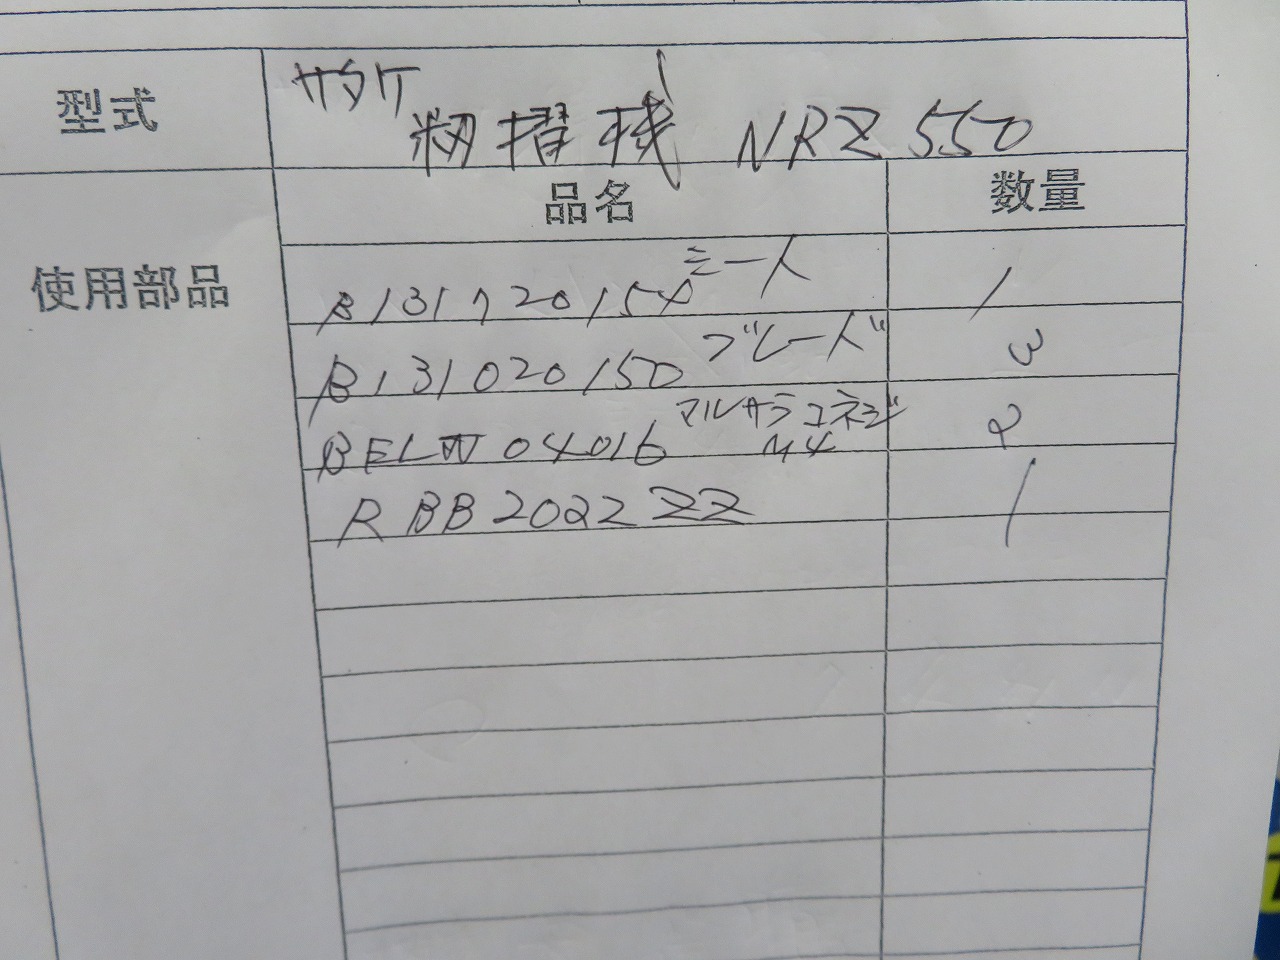 型式
サタケ
籾摺機 NRZ550
品名 数量
使用部品
シート
B131720154 1
ブレード
B131020150 3
マルサラコネジ
M4 2
04016
RBB2022ZZ 1